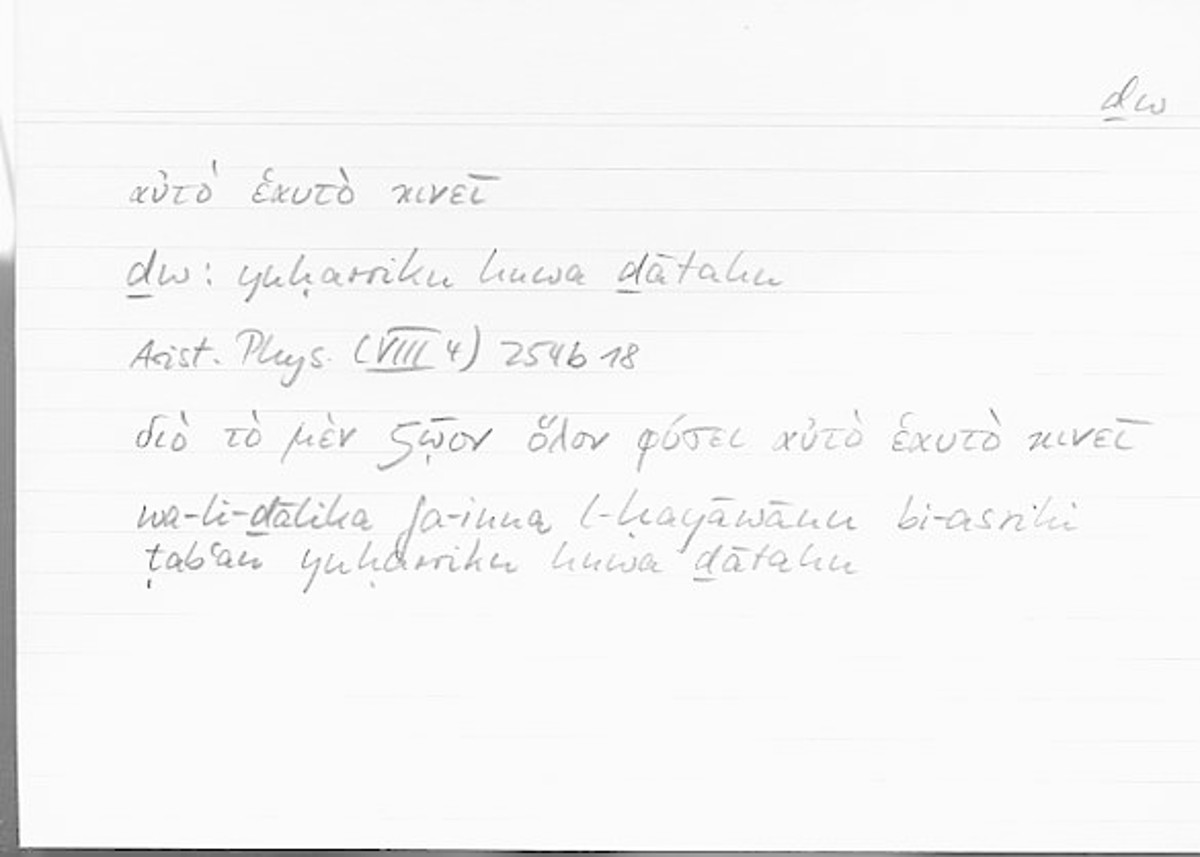 ḏw
αὐτὸ ἑαυτὸ κινεῖ
ḏw: yuḥarriku huwa ḏātahu
Arist. Phys. (VIII 4) 254b 18
διὸ τὸ μὲν ζῷον ὅλον φύσει αὐτὸ ἑαυτὸ κινεῖ
wa-li-ḏālika fa-inna l-ḥayāwānu bi-asrihi
ṭabʿan yuḥarriku huwa ḏātahu